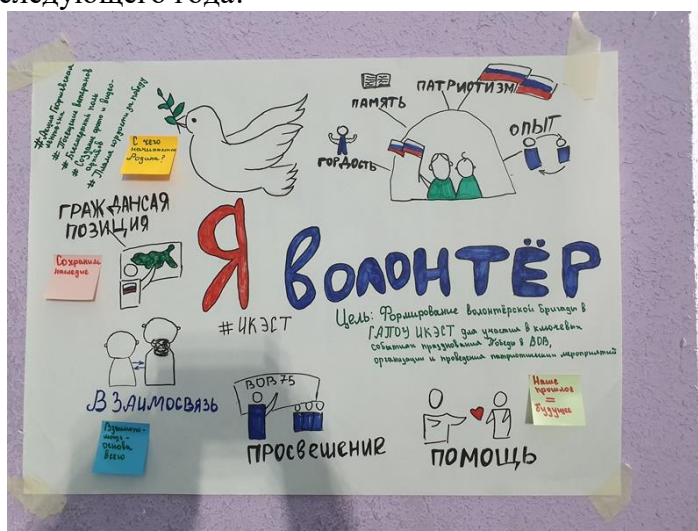 следующего года.
#Акция Георгиевская
ленточка
#Посещение ветеранов
#Бессмертный полк
#Создание фото и видео-
архивов
С чего
начинается
Родина?
ПАМЯТЬ
ПАТРИОТИЗМ
ГОРДОСТЬ
ОПЫТ
ГРАЖДАНСАЯ
ПОЗИЦИЯ
Сохраним
наследие
Я ВОЛОНТЁР
#ИКЭСТ
Цель: Формирование волонтёрской бригады в
ГАПОУ ИКЭСТ для участия в ключевых
событиях празднования Победы в ВОВ,
организации и проведения патриотических мероприятий
ВЗАИМОСВЯЗЬ
Взаимопо-
мощь -
основа
всего
ВОВ 75
ПРОСВЕШЕНИЕ
ПОМОЩЬ
Наше
прошлое
=
будущее